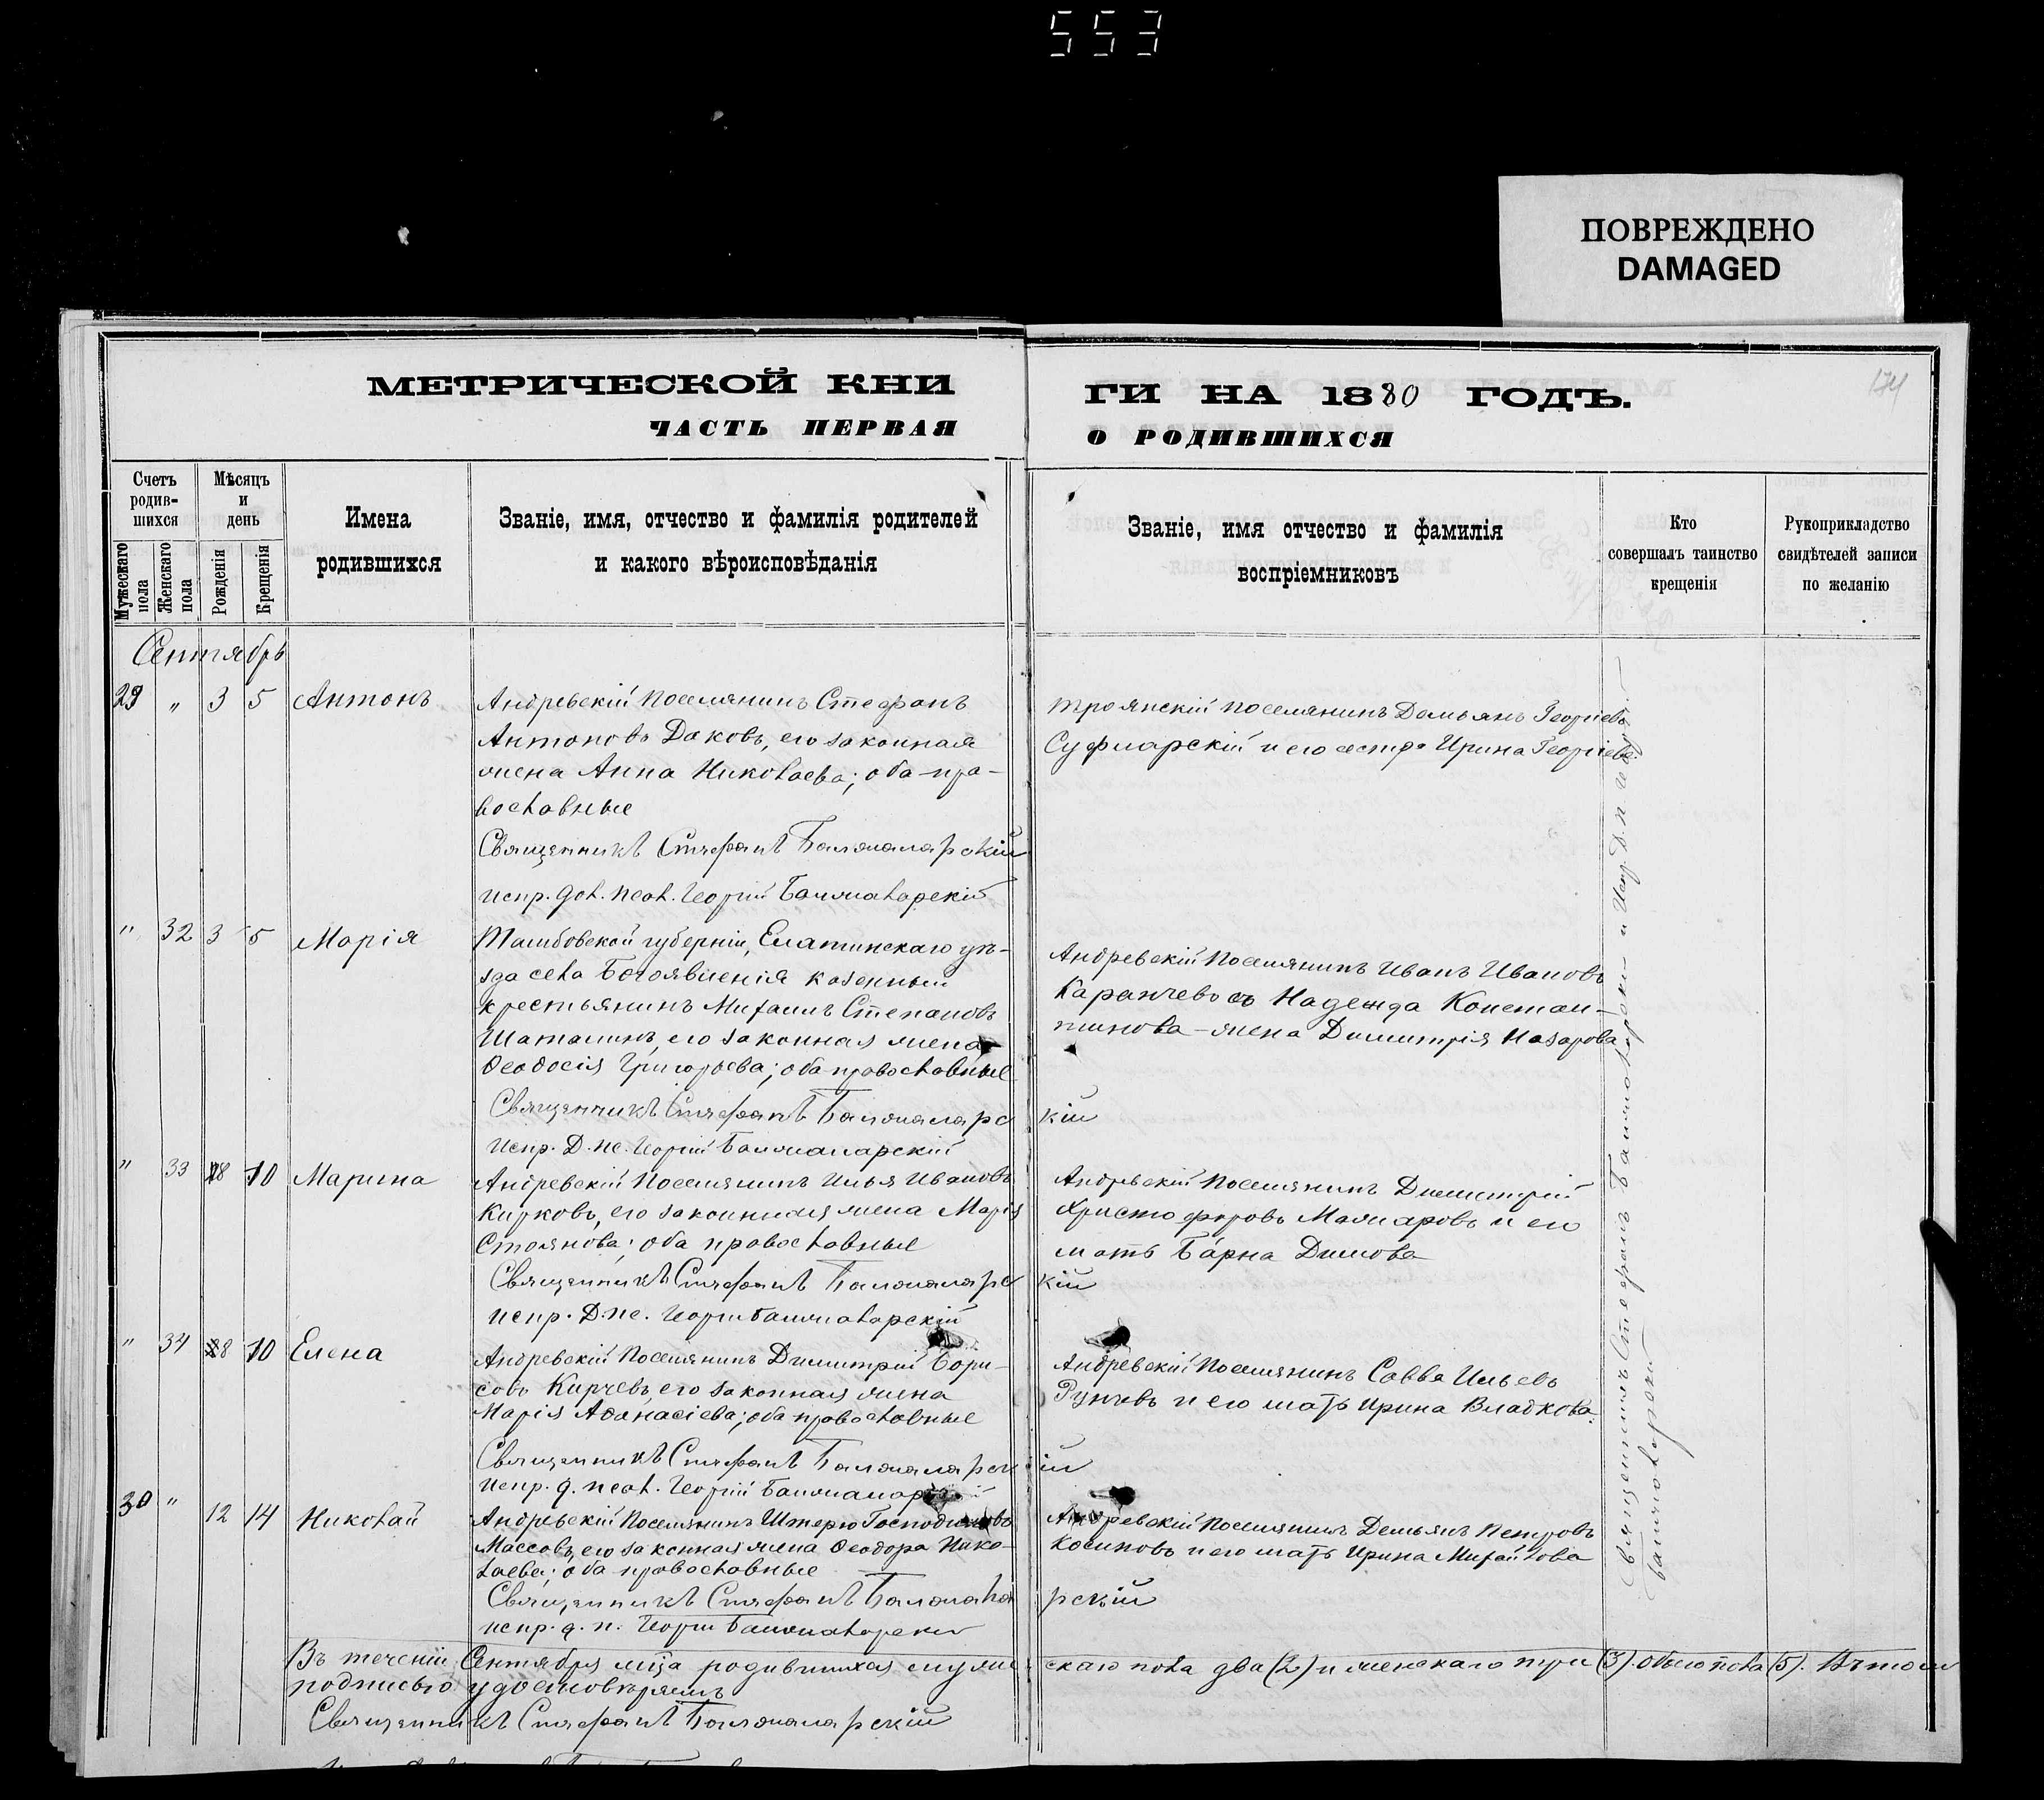 553
ПОВРЕЖДЕНО
DAMAGED
МЕТРИЧЕСКОЙ КНИ
ГИ НА 1880 ГОДЪ.
174
ЧАСТЬ ПЕРВАЯ
О РОДИВШИХСЯ
Счетъ родив-шихся
Мѣсяцъ и день
Мужескаго пола
Женскаго пола
Рожденія
Крещенія
Имена родившихся
Званіе, имя, отчество и фамилія родителей
и какого вѣроисповѣданія
Званіе, имя отчество и фамилія
воспріемниковъ
Кто
совершалъ таинство
крещенія
Рукоприкладство
свидѣтелей записи
по желанію
Сентябрь
29 " 3 5 Антонъ
Андревскій Поселянинъ Стефанъ
Антоновъ Даковъ, его законная
жена Анна Николаева; оба пра-
вославные
Священникъ Стефанъ Балжаларскій
испр. дол. псал. Георгій Балжаларскій
Троянскій поселянинъ Демьянъ Георгіевъ
и его сестра Ирина Георгіева
" 32 3 5 Марія
Тамбовской губерніи, Елатинскаго уѣ-
зда села Богоявленія казенный
крестьянинъ Михаилъ Степановъ
Шаталинъ, его законная жена
Феодосія Григорьева; оба православные
Священникъ Стефанъ Балжаларскій
испр. д. пс. Георгій Балжаларскій
Андревскій Поселянинъ Иванъ Ивановъ
Надежда Констан-
тинова жена Димитрія Назарова
" 33 8 10 Марина
Андревскій Поселянинъ Илья Ивановъ
Кирковъ, его законная жена Марія
Стоянова; оба православные
Священникъ Стефанъ Балжаларскій
испр. Д. пс. Георгій Балжаларскій
Андревскій Поселянинъ Димитрій
Христофоровъ и его
мать Димова
" 34 8 10 Елена
Андревскій Поселянинъ Димитрій Бори-
совъ Кирчевъ, его законная жена
Марія Афанасіева; оба православные
Священникъ Стефанъ Балжаларскій
испр. д. псал. Георгій Балжаларскій
Андревскій Поселянинъ Савва Ильевъ
и его мать Ирина Владкова
30 " 12 14 Николай
Андревскій Поселянинъ Штерю Господиновъ
Массовъ, его законная жена Феодора Нико-
лаева; оба православные
Священникъ Стефанъ Балжаларскій
испр. д. п. Георгій Балжаларскій
Андревскій Поселянинъ Демьянъ Петровъ
и его мать Ирина Михайлова
Священникъ Стефанъ Балжаларскій и Испр. Д. п.
Балжаларскій
Въ теченіи Сентября мѣца родившихся мужескаго пола два (2) и женскаго три (3). обоего пола (5). Въ томъ
подписью удостовѣряемъ
Священникъ Стефанъ Балжаларскій